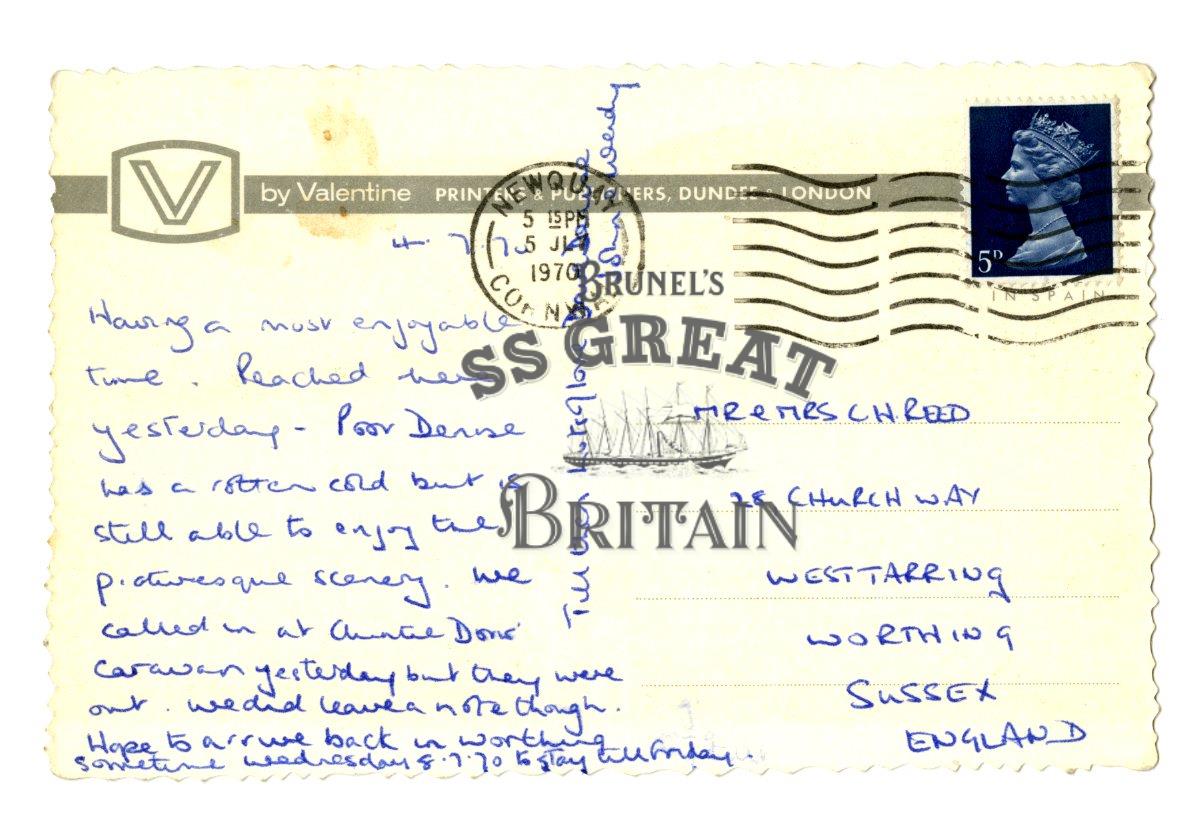 V by Valentine PRINTERS & PUBLISHERS, DUNDEE & LONDON
NEWQUAY
5 15PM
5 JLY
1970
CORNWALL
5D
IN SPAIN
4.7.70
Having a most enjoyable
time. Reached here
yesterday - Poor Denise
has a rotten cold but is
still able to enjoy the
picturesque scenery. We
called in at Auntie Doris'
caravan yesterday but they were
out. We did leave a note though.
Hope to arrive back in Worthing
sometime Wednesday 8.7.70 to stay till Friday.
Till then, lots of love
John Wendy
MR & MRS C.H. REED
28 CHURCH WAY
WEST TARRING
WORTHING
SUSSEX
ENGLAND
BRUNEL'S
SS GREAT
BRITAIN